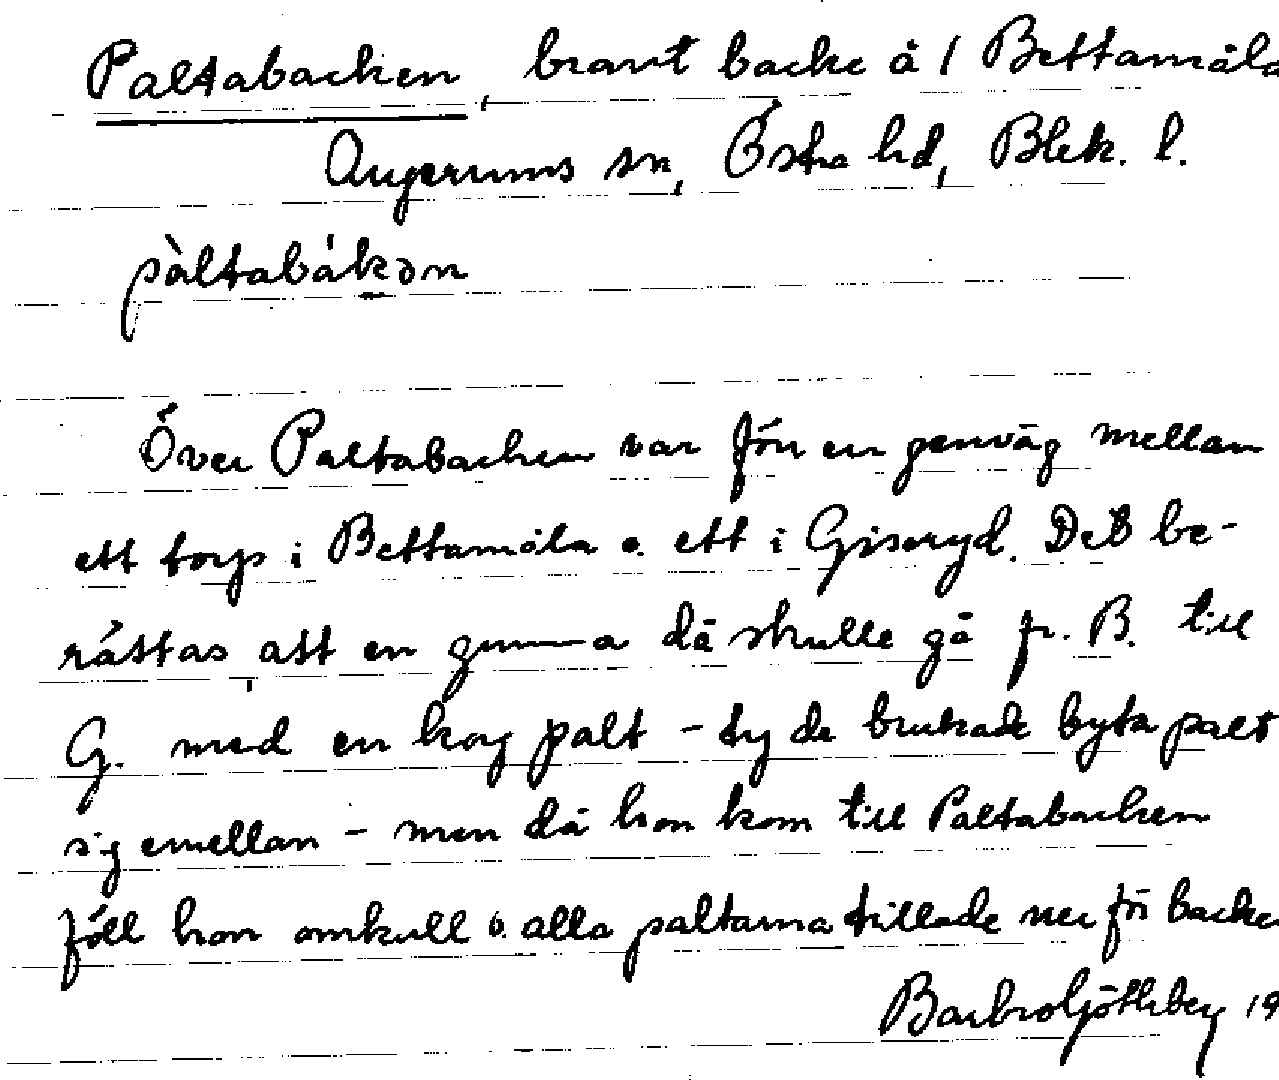 Paltabacken, brant backe å 1 Bettamåla
Augerums sn, Östra hd, Blek. l.
pàltabákən
Över Paltabacken var förr en genväg mellan
ett torp i Bettamåla o. ett i Giseryd. Det be-
rättas att en gumma då skulle gå fr. B. till
G. med en korg palt - ty de brukade byta palt
sig emellan - men då hon kom till Paltabacken
föll hon omkull o. alla paltarna trillade ner för backen
Barbro Göthberg 19